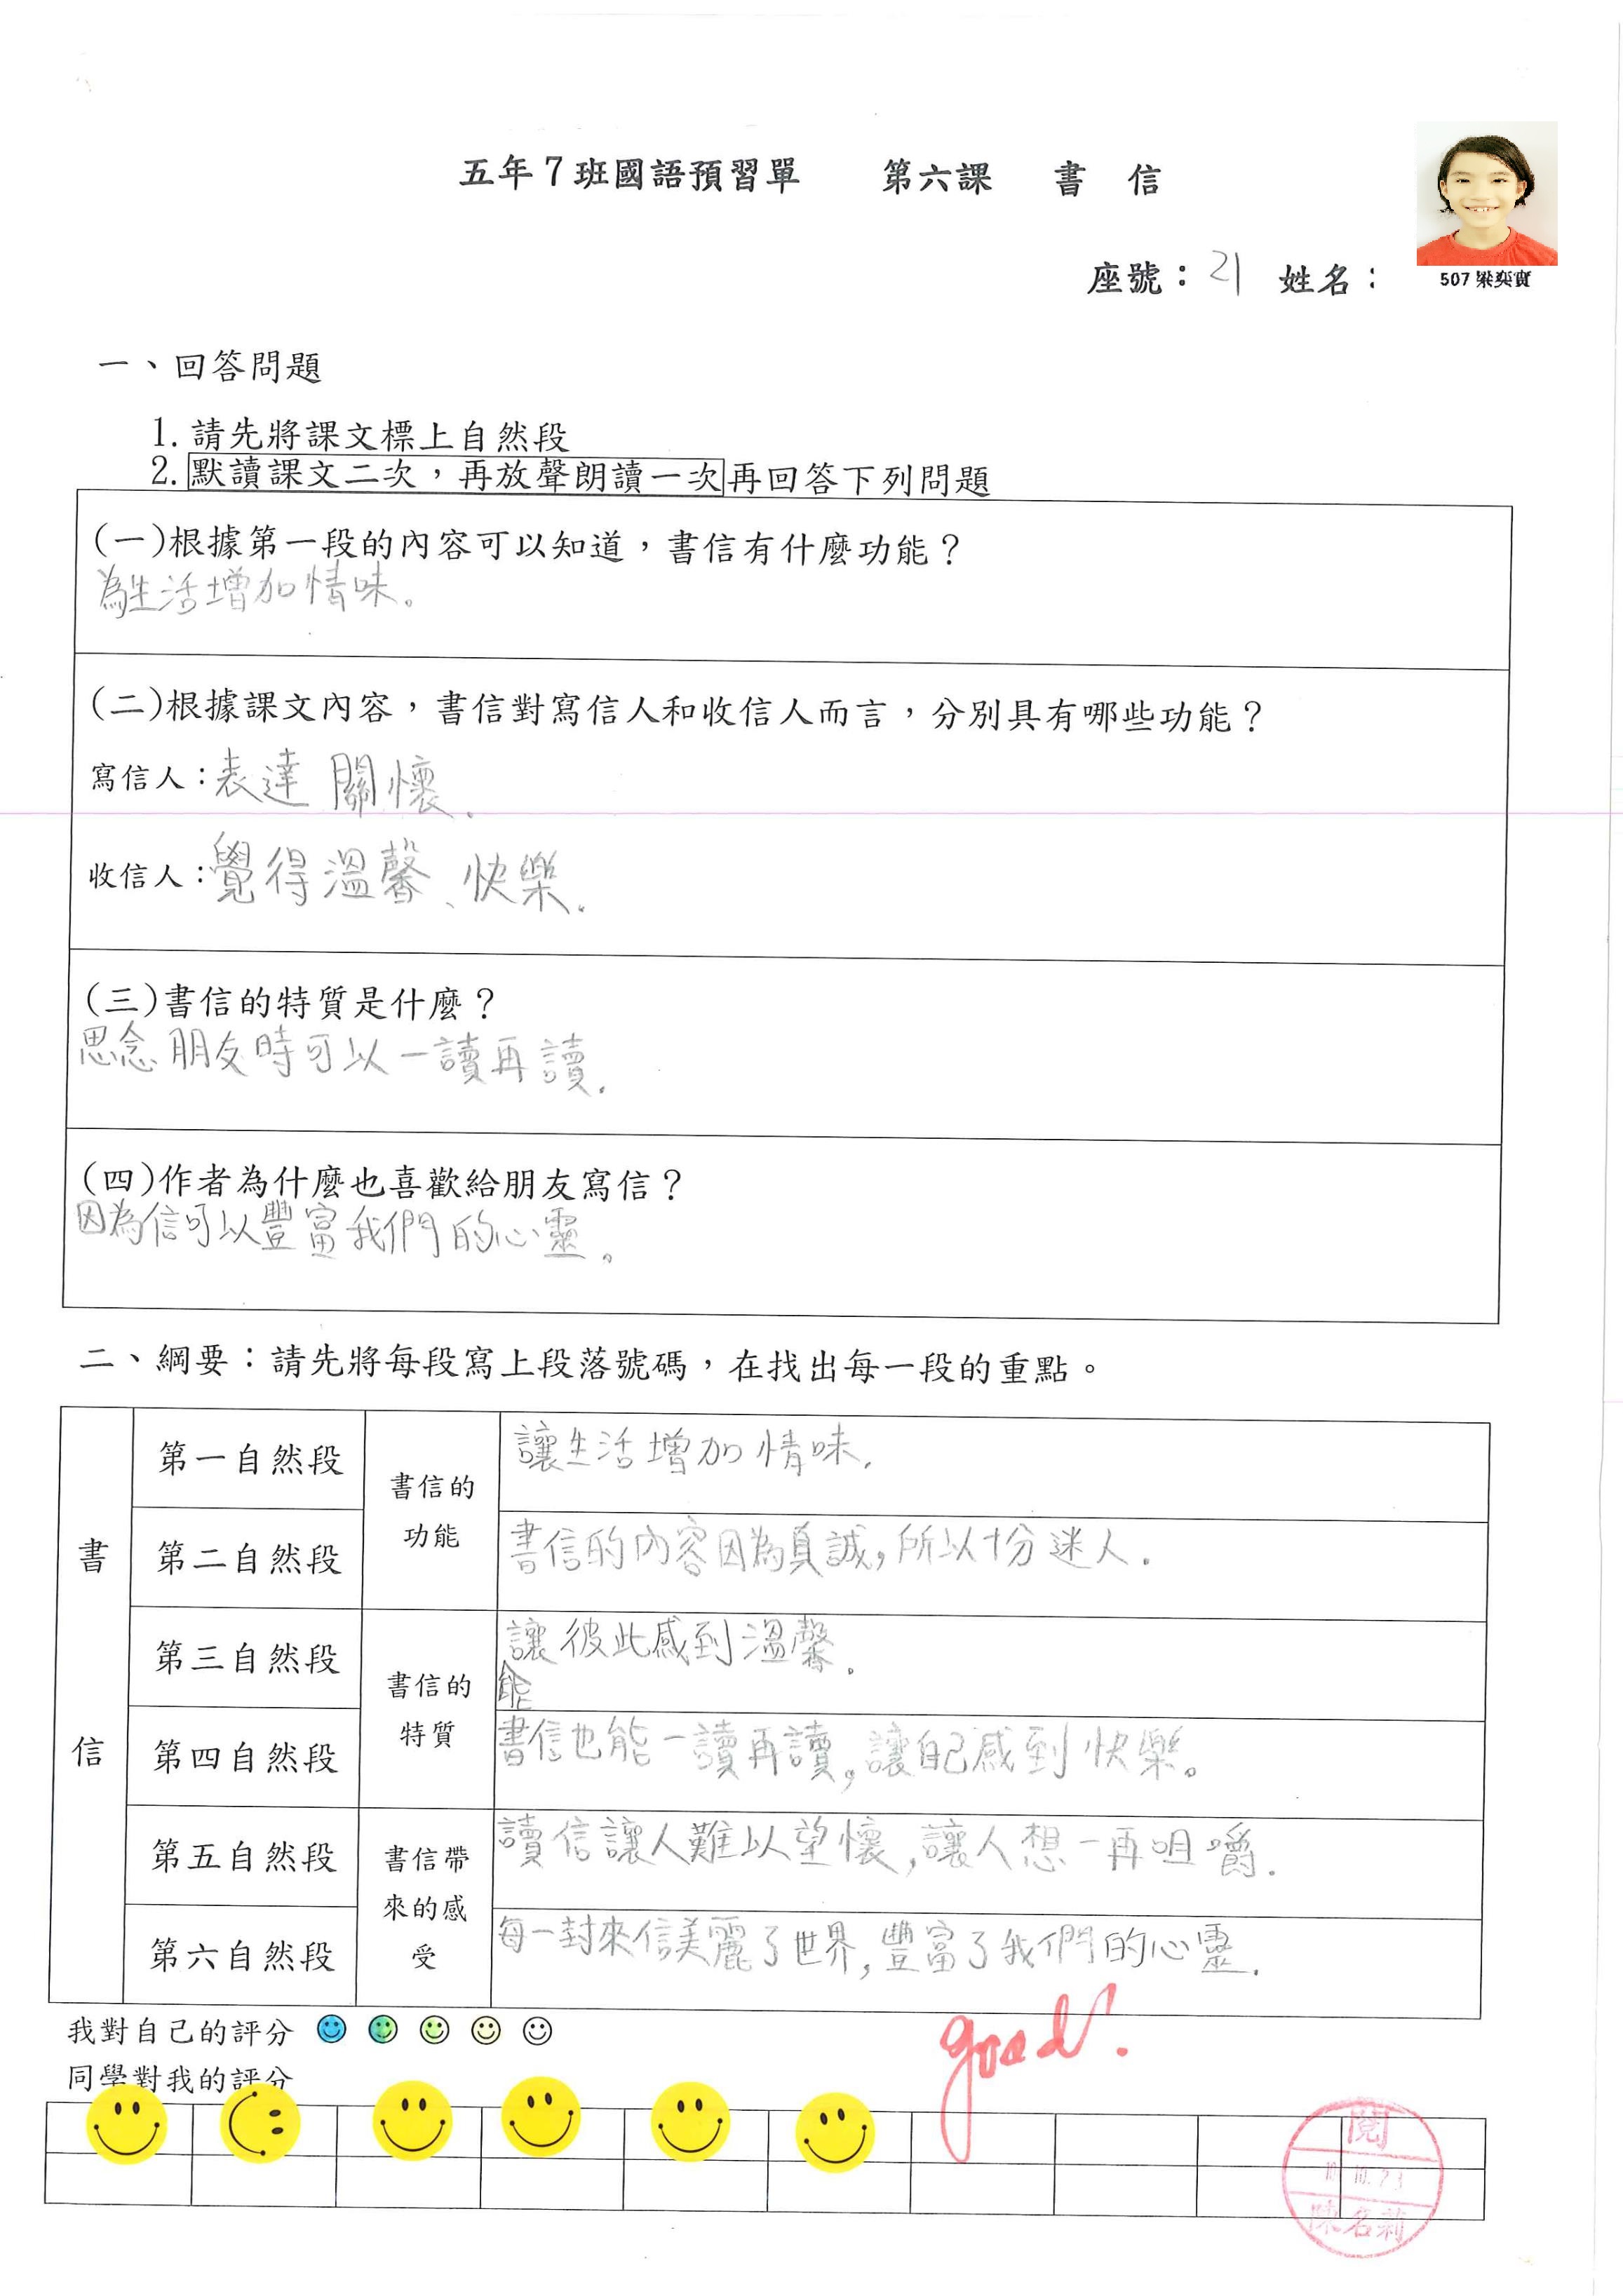 五年7班國語預習單 第六課 書 信
座號：21 姓名：
507 梁奕寶
一、回答問題
1. 請先將課文標上自然段
2. 默讀課文二次，再放聲朗讀一次再回答下列問題
(一)根據第一段的內容可以知道，書信有什麼功能？
為生活增加情味。
(二)根據課文內容，書信對寫信人和收信人而言，分別具有哪些功能？
寫信人：表達關懷.
收信人：覺得溫馨、快樂.
(三)書信的特質是什麼？
思念朋友時可以一讀再讀.
(四)作者為什麼也喜歡給朋友寫信？
因為信可以豐富我們的心靈。
二、綱要：請先將每段寫上段落號碼，在找出每一段的重點。
書信
第一自然段
書信的功能
讓生活增加情味.
第二自然段
書信的內容因為真誠,所以十分迷人.
第三自然段
書信的特質
讓彼此感到溫馨.
能
第四自然段
書信也能一讀再讀,讓自己感到快樂。
第五自然段
書信帶來的感受
讀信讓人難以望懷,讓人想一再咀嚼.
第六自然段
每一封來信美麗了世界,豐富了我們的心靈.
我對自己的評分
同學對我的評分
good!
閱
陳名莉